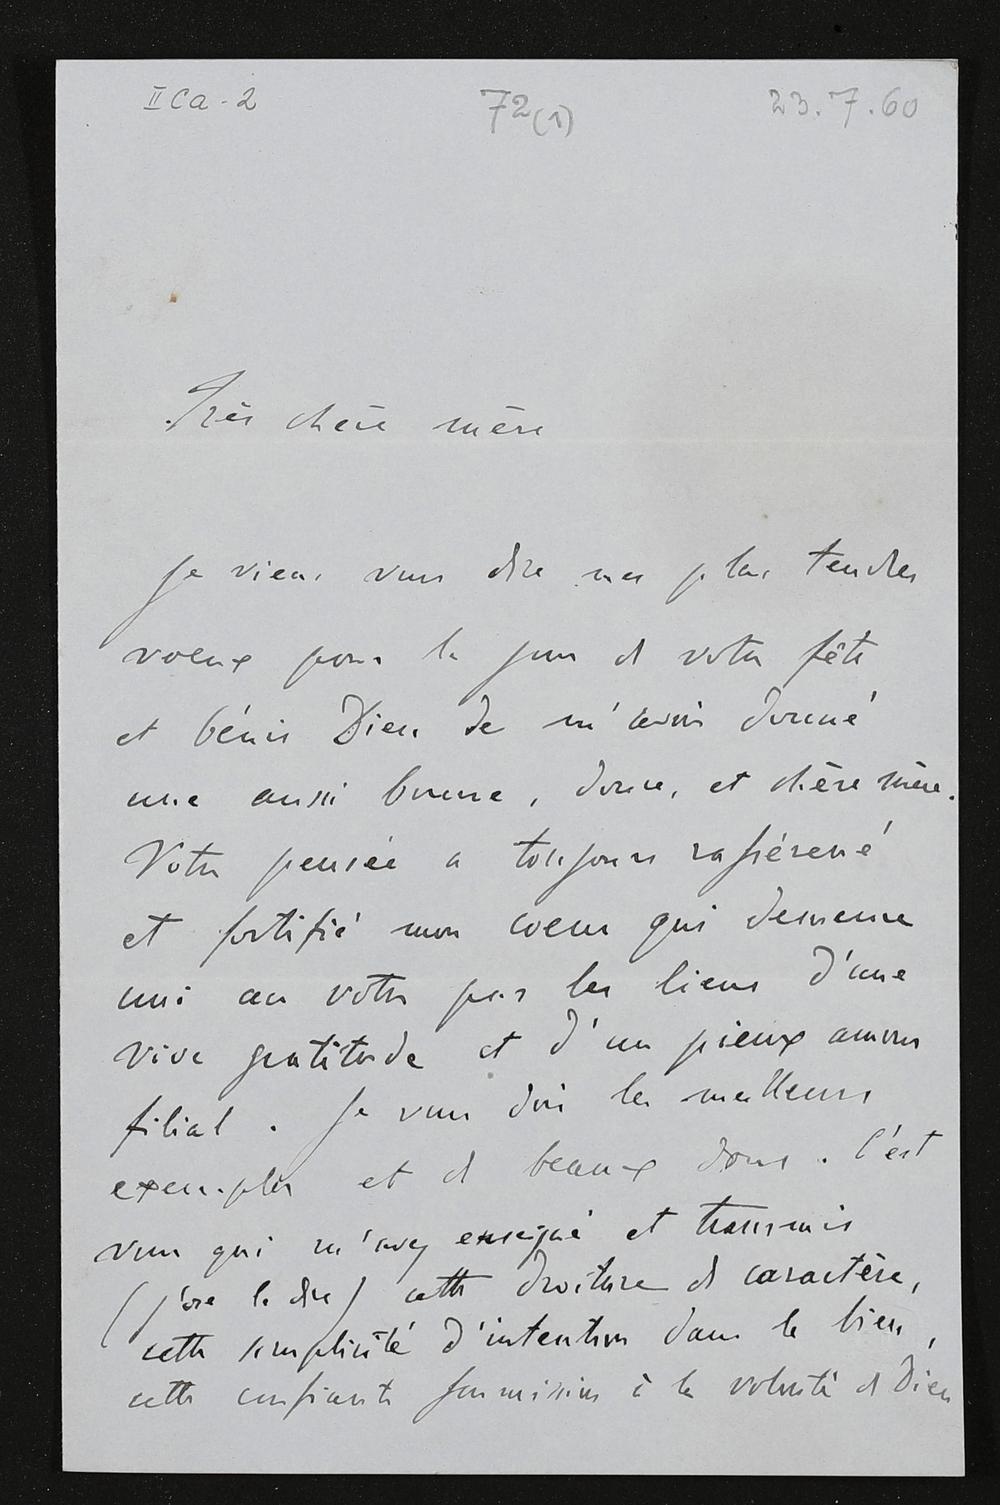 II Ca - 2
72(1)
23.7.60
Très chère mère
je viens vous dire mes plus tendres
voeux pour le jour de votre fête
et bénis Dieu de m'avoir donné
une aussi bonne, douce, et chère mère.
Votre pensée a toujours rasséréné
et fortifié mon coeur qui demeure
uni au votre par les liens d'une
vive gratitude et d'un pieux amour
filial. Je vous dois les meilleurs
exemples et de beaux dons. C'est
vous qui m'avez enseigné et transmis
(j'ose le dire) cette droiture de caractère,
cette simplicité d'intention dans le bien,
cette confiante soumission à la volonté de Dieu